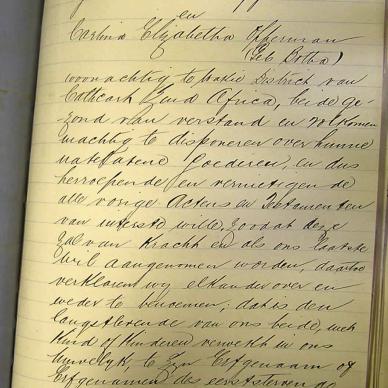 en
Carlina Elizabetha Offerman
(Geb Botha)
woonachtig te District van
Cathcart Zuid Africa, beide ge-
zond van verstand en volkomen
machtig te disponeren over hunne
natelatene Goederen, en dus
herroepende en vernietigende
alle vorige Actens en Testamenten
van uiterste wille, zoodat deze
zal van kracht en als ons laatste
wil aangenomen worden, daartoe
verklaren wy elkander over en
weder te benoemen; dat is den
langstlevende van ons beide, met
Kind of Kinderen verwekt in ons
Huwelyk, te Zyn Erfgenaam of
Erfgenamen des eerststervende